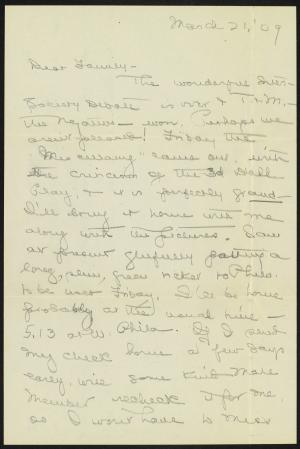 March 21, '09
Dear Family -
The wonderful Inter-
Society Debate is over & T. & M. -
the Negative - won. Perhaps we
aren't pleased! Friday the
"Miscellany" came out, with
the criticism of the 3d Hall
Play, & it is perfectly grand -
I'll bring it home with me
along with the pictures. I am
at present gleefully patting a
long, slim, green ticket to Phila.
to be used Friday. I'll be home
probably at the usual time -
5.13 at W. Phila. If I send
my check home a few days
early, will some kind Male
Member recheck it for me,
so I won't have to miss